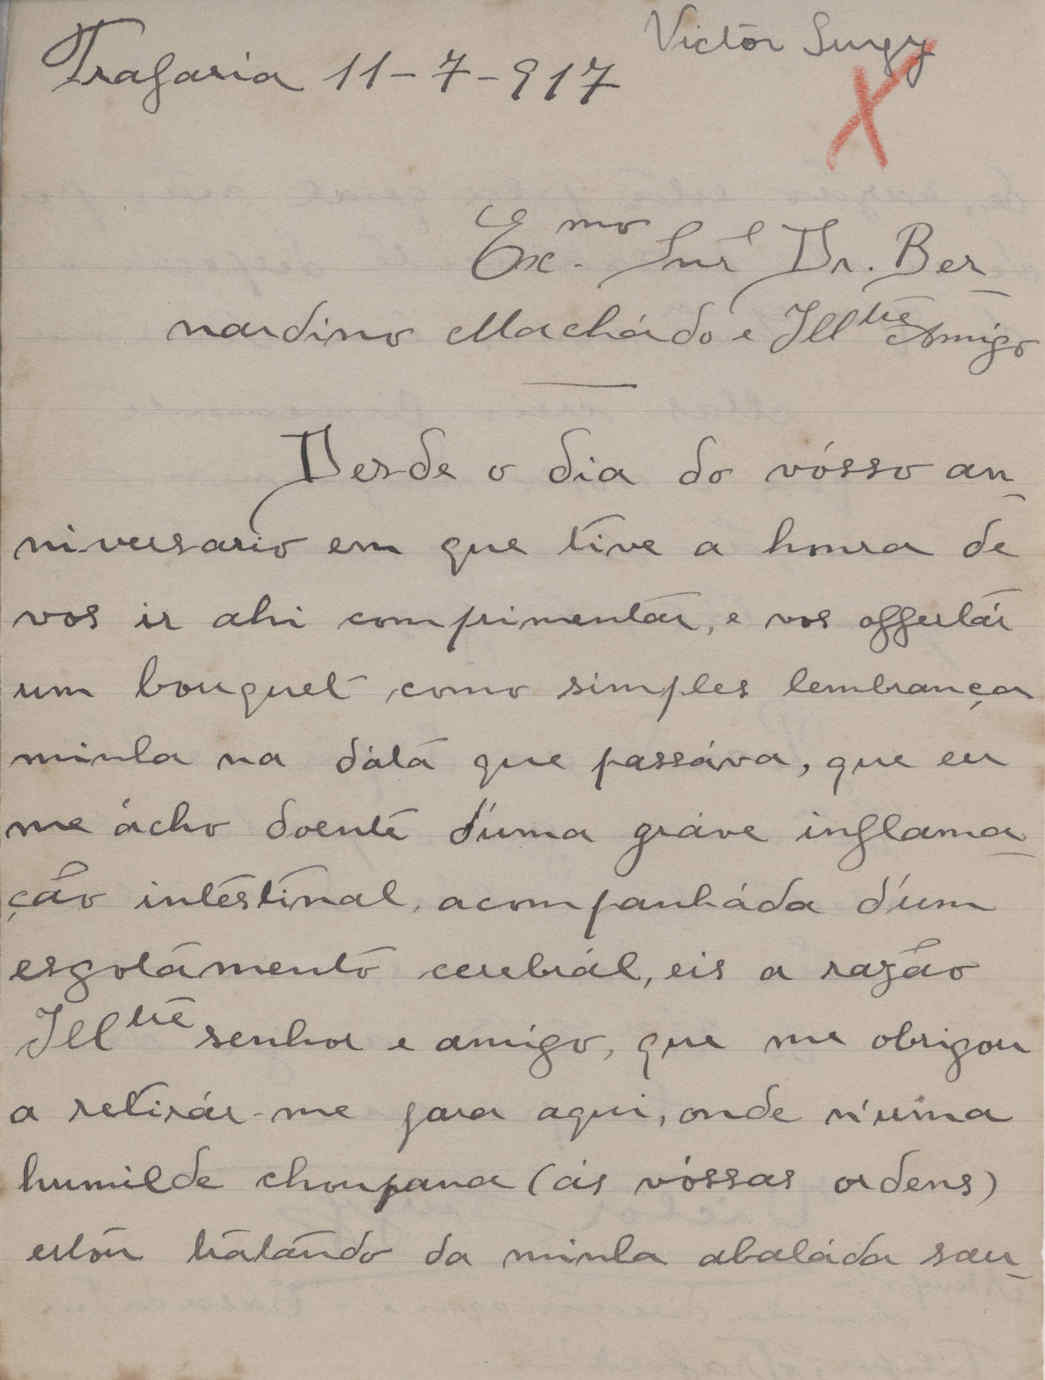 Victor Surgy
Trafaria 11-7-917
Ex.mo Snr Dr. Ber-
nardino Machádo e Illtre Amigo
Desde o dia do vósso an-
niversario em que tive a honra de
vos ir ahi comprimentár, e vos offertár
um bouquet como simples lembrança
minha na dáta que passáva, que eu
me ácho doente d'uma gráve inflama-
ção intestinal, acompanháda d'um
esgotámento cerebrál, eis a razão
Illtre senhor e amigo, que me obrigou
a retirár-me para aqui, onde n'uma
humilde choupana (ás vóssas ordens)
estou tratándo da minha abaláda sau-